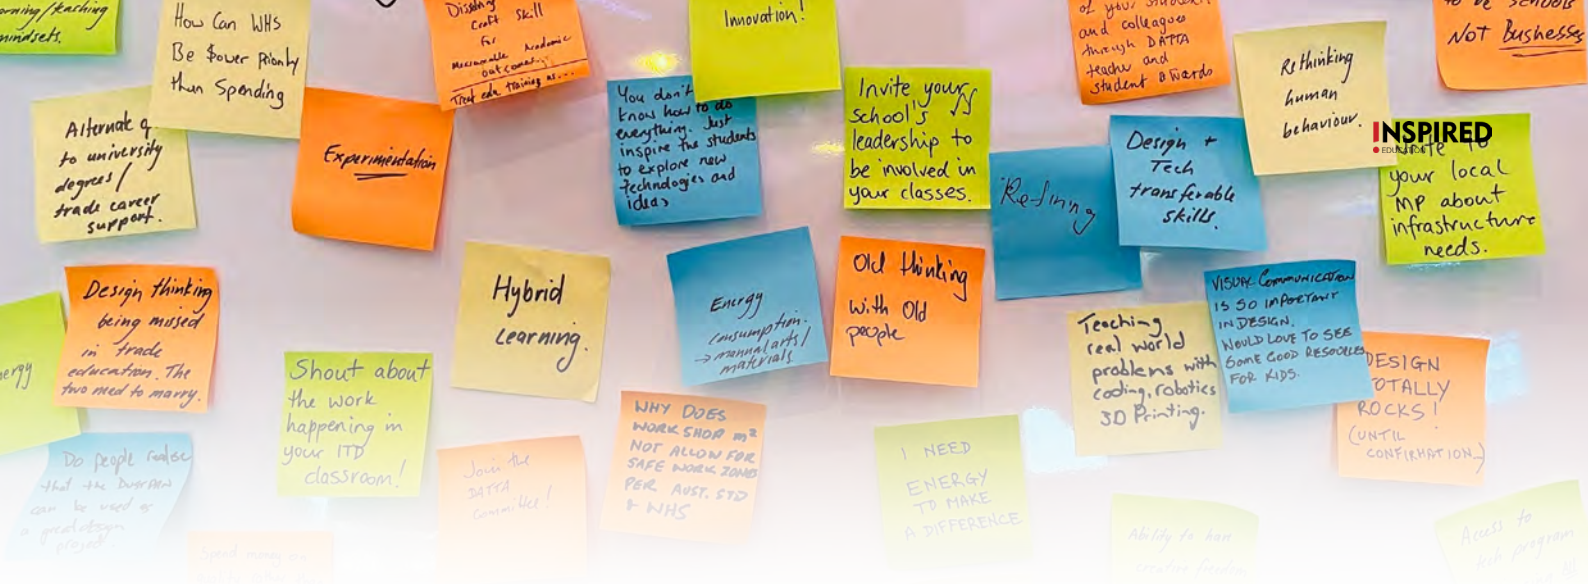 mindsets.
How Can WHS
Be $ower Priority
than Spending
Craft Skill
For
Measurable Academic
outcomes...
Treat edu training as...
Innovation!
of your students
and colleagues
through DATTA
teacher and
student awards
to be schools
NOT Businesses
Alternate
to university
degrees/
trade career
support.
Experimentation
You don't
know how to do
everything. Just
inspire the students
to explore new
technologies and
ideas
Invite your
school's
leadership to
be involved in
your classes.
Refining
Design +
Tech
transferable
skills.
Rethinking
human
behaviour.
INSPIRED
EDUCATION
Write to
your local
MP about
infrastructure
needs.
Design thinking
being missed
in trade
education. The
two med to marry.
Hybrid
Learning.
Energy
consumption.
→ manual arts/
materials
Old thinking
with Old
people
Teaching
real world
problems with
coding, robotics
3D Printing.
VISUAL COMMUNICATION
IS SO IMPORTANT
IN DESIGN.
WOULD LOVE TO SEE
SOME GOOD RESOURCES
FOR KIDS.
DESIGN
TOTALLY
ROCKS!
(UNTIL
CONFIRMATION)
Shout about
the work
happening in
your ITD
classroom!
WHY DOES
WORKSHOP m²
NOT ALLOW FOR
SAFE WORK ZONES
PER AUST. STD
& WHS
Join the
DATTA
committee!
I NEED
ENERGY
TO MAKE
A DIFFERENCE
Do people realise
that the Dustpan
can be used as
a great design
project.
Spend money on
Ability to have
creative freedom
Access to
tech program